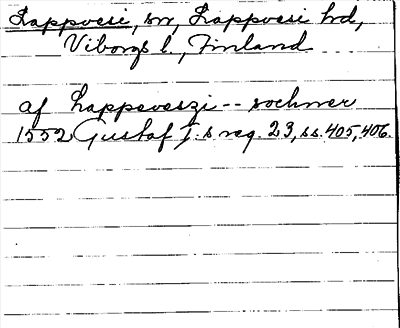 Lappvesi, sn, Lappvesi hd,
Viborgs l., Finland
af Lappeveszi -- sochner
1552 Gustaf I:s reg. 23, ss. 405, 406.